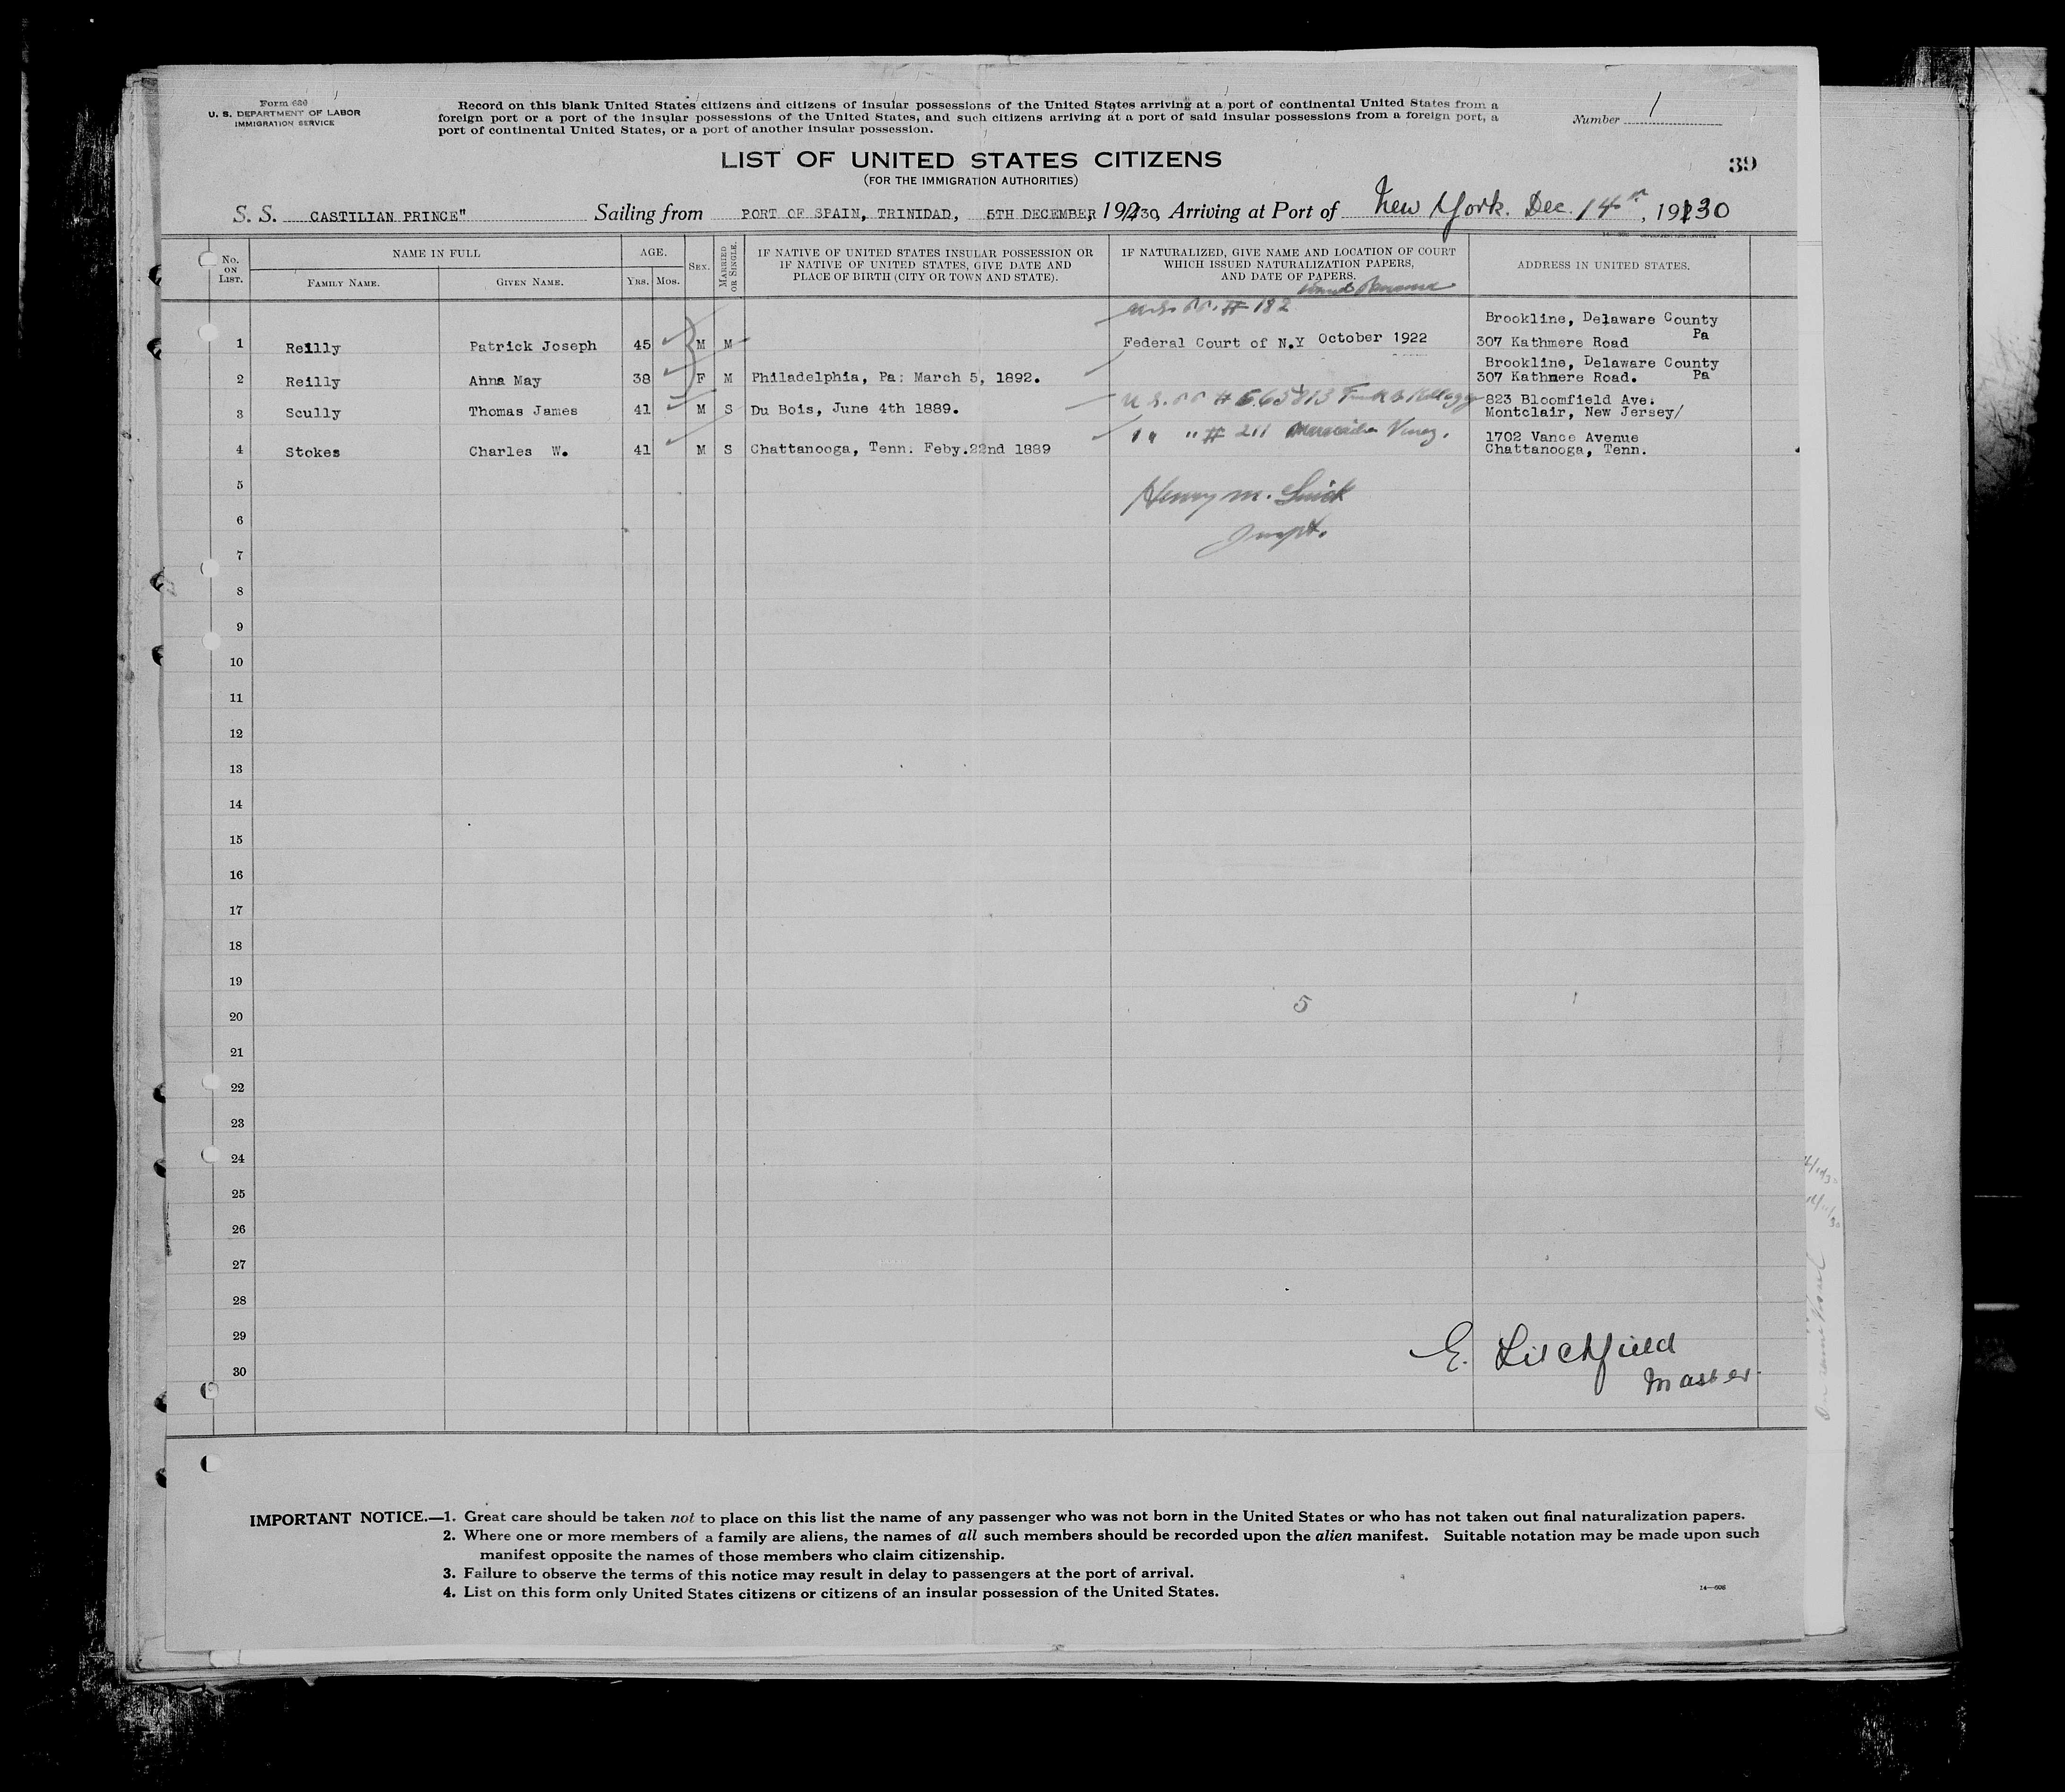 Form 630
U. S. DEPARTMENT OF LABOR
IMMIGRATION SERVICE
Record on this blank United States citizens and citizens of insular possessions of the United States arriving at a port of continental United States from a
foreign port or a port of the insular possessions of the United States, and such citizens arriving at a port of said insular possessions from a foreign port, a
port of continental United States, or a port of another insular possession.
Number 1
LIST OF UNITED STATES CITIZENS
(FOR THE IMMIGRATION AUTHORITIES)
39
S. S. CASTILIAN PRINCE" Sailing from PORT OF SPAIN, TRINIDAD, 5TH DECEMBER, 1930, Arriving at Port of New York. Dec. 14th, 1930
No. ON LIST.
NAME IN FULL
FAMILY NAME.
GIVEN NAME.
AGE.
YRS. MOS.
SEX.
MARRIED OR SINGLE.
IF NATIVE OF UNITED STATES INSULAR POSSESSION OR
IF NATIVE OF UNITED STATES, GIVE DATE AND
PLACE OF BIRTH (CITY OR TOWN AND STATE).
IF NATURALIZED, GIVE NAME AND LOCATION OF COURT
WHICH ISSUED NATURALIZATION PAPERS,
AND DATE OF PAPERS.
ADDRESS IN UNITED STATES.
# 182 Panama
Brookline, Delaware County
1 Reilly Patrick Joseph 45 M M Federal Court of N.Y October 1922 307 Kathmere Road Pa
Brookline, Delaware County
2 Reilly Anna May 38 F M Philadelphia, Pa: March 5, 1892. 307 Kathmere Road. Pa
3 Scully Thomas James 41 M S Du Bois, June 4th 1889. U.S. PP # 665813 Frank B Kellogg 823 Bloomfield Ave:
Montclair, New Jersey/
" " # 211 Maracaibo Venez. 1702 Vance Avenue
4 Stokes Charles W. 41 M S Chattanooga, Tenn: Feby.22nd 1889 Chattanooga, Tenn.
5
Henry M.
6
Inspt.
7
8
9
10
11
12
13
14
15
16
17
18
19
5
20
21
22
23
24
25
26
27
28
29
E. Litchfield
30
Master.
IMPORTANT NOTICE.—1. Great care should be taken not to place on this list the name of any passenger who was not born in the United States or who has not taken out final naturalization papers.
2. Where one or more members of a family are aliens, the names of all such members should be recorded upon the alien manifest. Suitable notation may be made upon such
manifest opposite the names of those members who claim citizenship.
3. Failure to observe the terms of this notice may result in delay to passengers at the port of arrival.
4. List on this form only United States citizens or citizens of an insular possession of the United States.
14—608